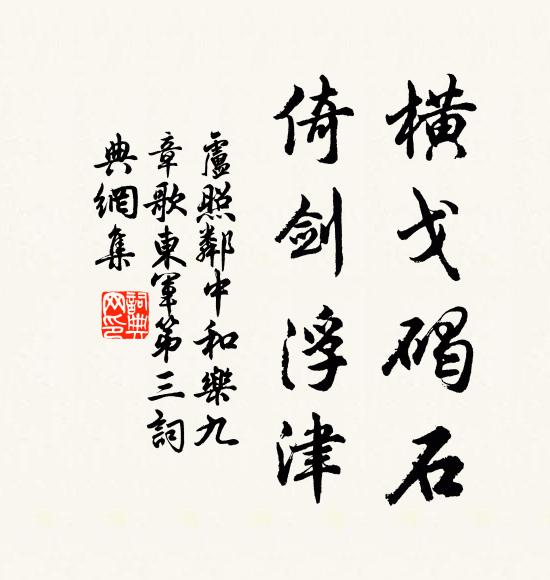 橫戈碣石
倚剑浮津
盧照鄰中和樂九
章歌東軍第三詞
典網集
詞典
网印